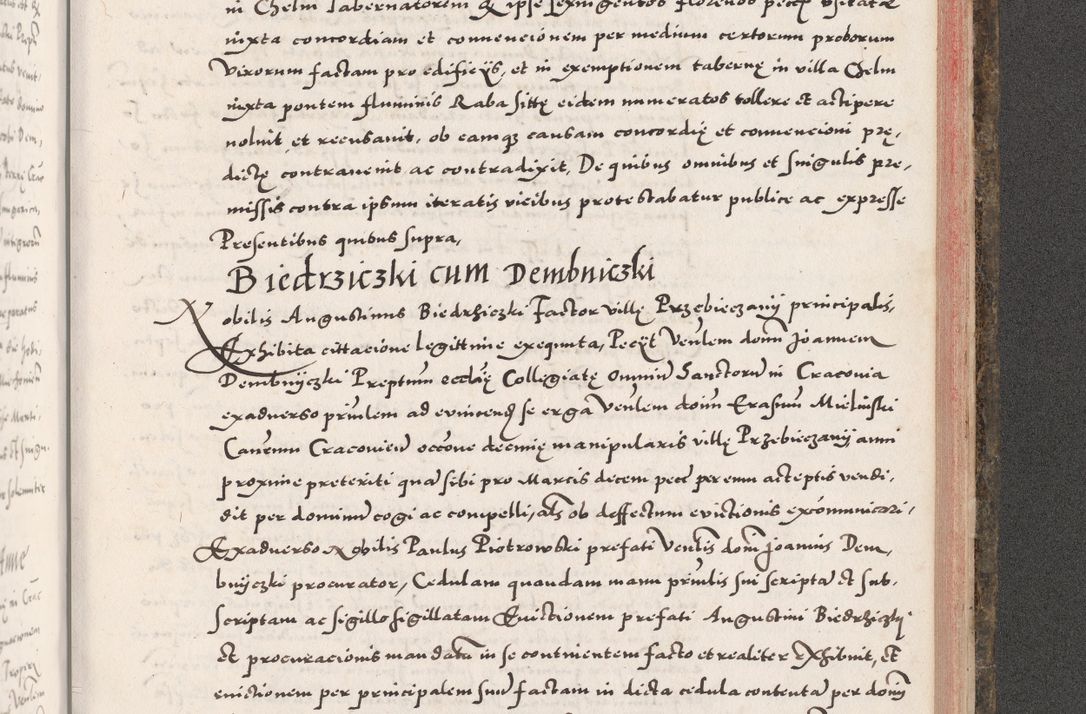 in Chelm Tabernatorem & ipse sexingentos florenos pecuę usitatae
iuxta concordiam et convencionem per medium certorum proborum
Virorum factam pro edificijs, et in exemptionem tabernę in villa Chelm
iuxta pontem fluminis Raba sittę eidem numeratos tollere et accipere
noluit et recusavit, ob eamq causam concordię et convencioni prę,
dictę contravenit ac contradixit, De quibus omnibus et singulis pre,
missis contra ipsum iteratis vicibus protestabatur publice ac expresse
Presentibus quibus supra,
Biedrziczki cum Dembniczki
Nobilis Augustinus Biedrziczki Factor villę Przebieczany principalis,
Exhibita cittacione legittime exequuta, Pecijt Venlem domi Joannem
Dembnyczki Preptum eccłię Collegiatę Omniū Sanctorū in Cracovia
exadverso prinlem ad evincend se erga Venlem doim Erasmū Mielinski
Canemu Cracovien occōne decimię manipularis villę Przebieczany anni
proxime preteriti quā sibi pro Marcis decem pecc per eum acceptis vendi,
dit per dominū cogi ac compelli, als ob deffectum evictionis excōmunicari,
Exadverso Nobilis Paulus Piotrowski prefati Venlis dom Joannis Dem,
bnyczki procurator, Cedulam quandam manu prinlis sui scriptā et sub,
scriptam ac sigillo sigillatam Evictionem prefati Augustini Biedrziczki
et procuracionis mandatū in se continentem facto et realiter exhibuit, et
evictionem per principalem suū factam in dicta cedula contentā per dominū